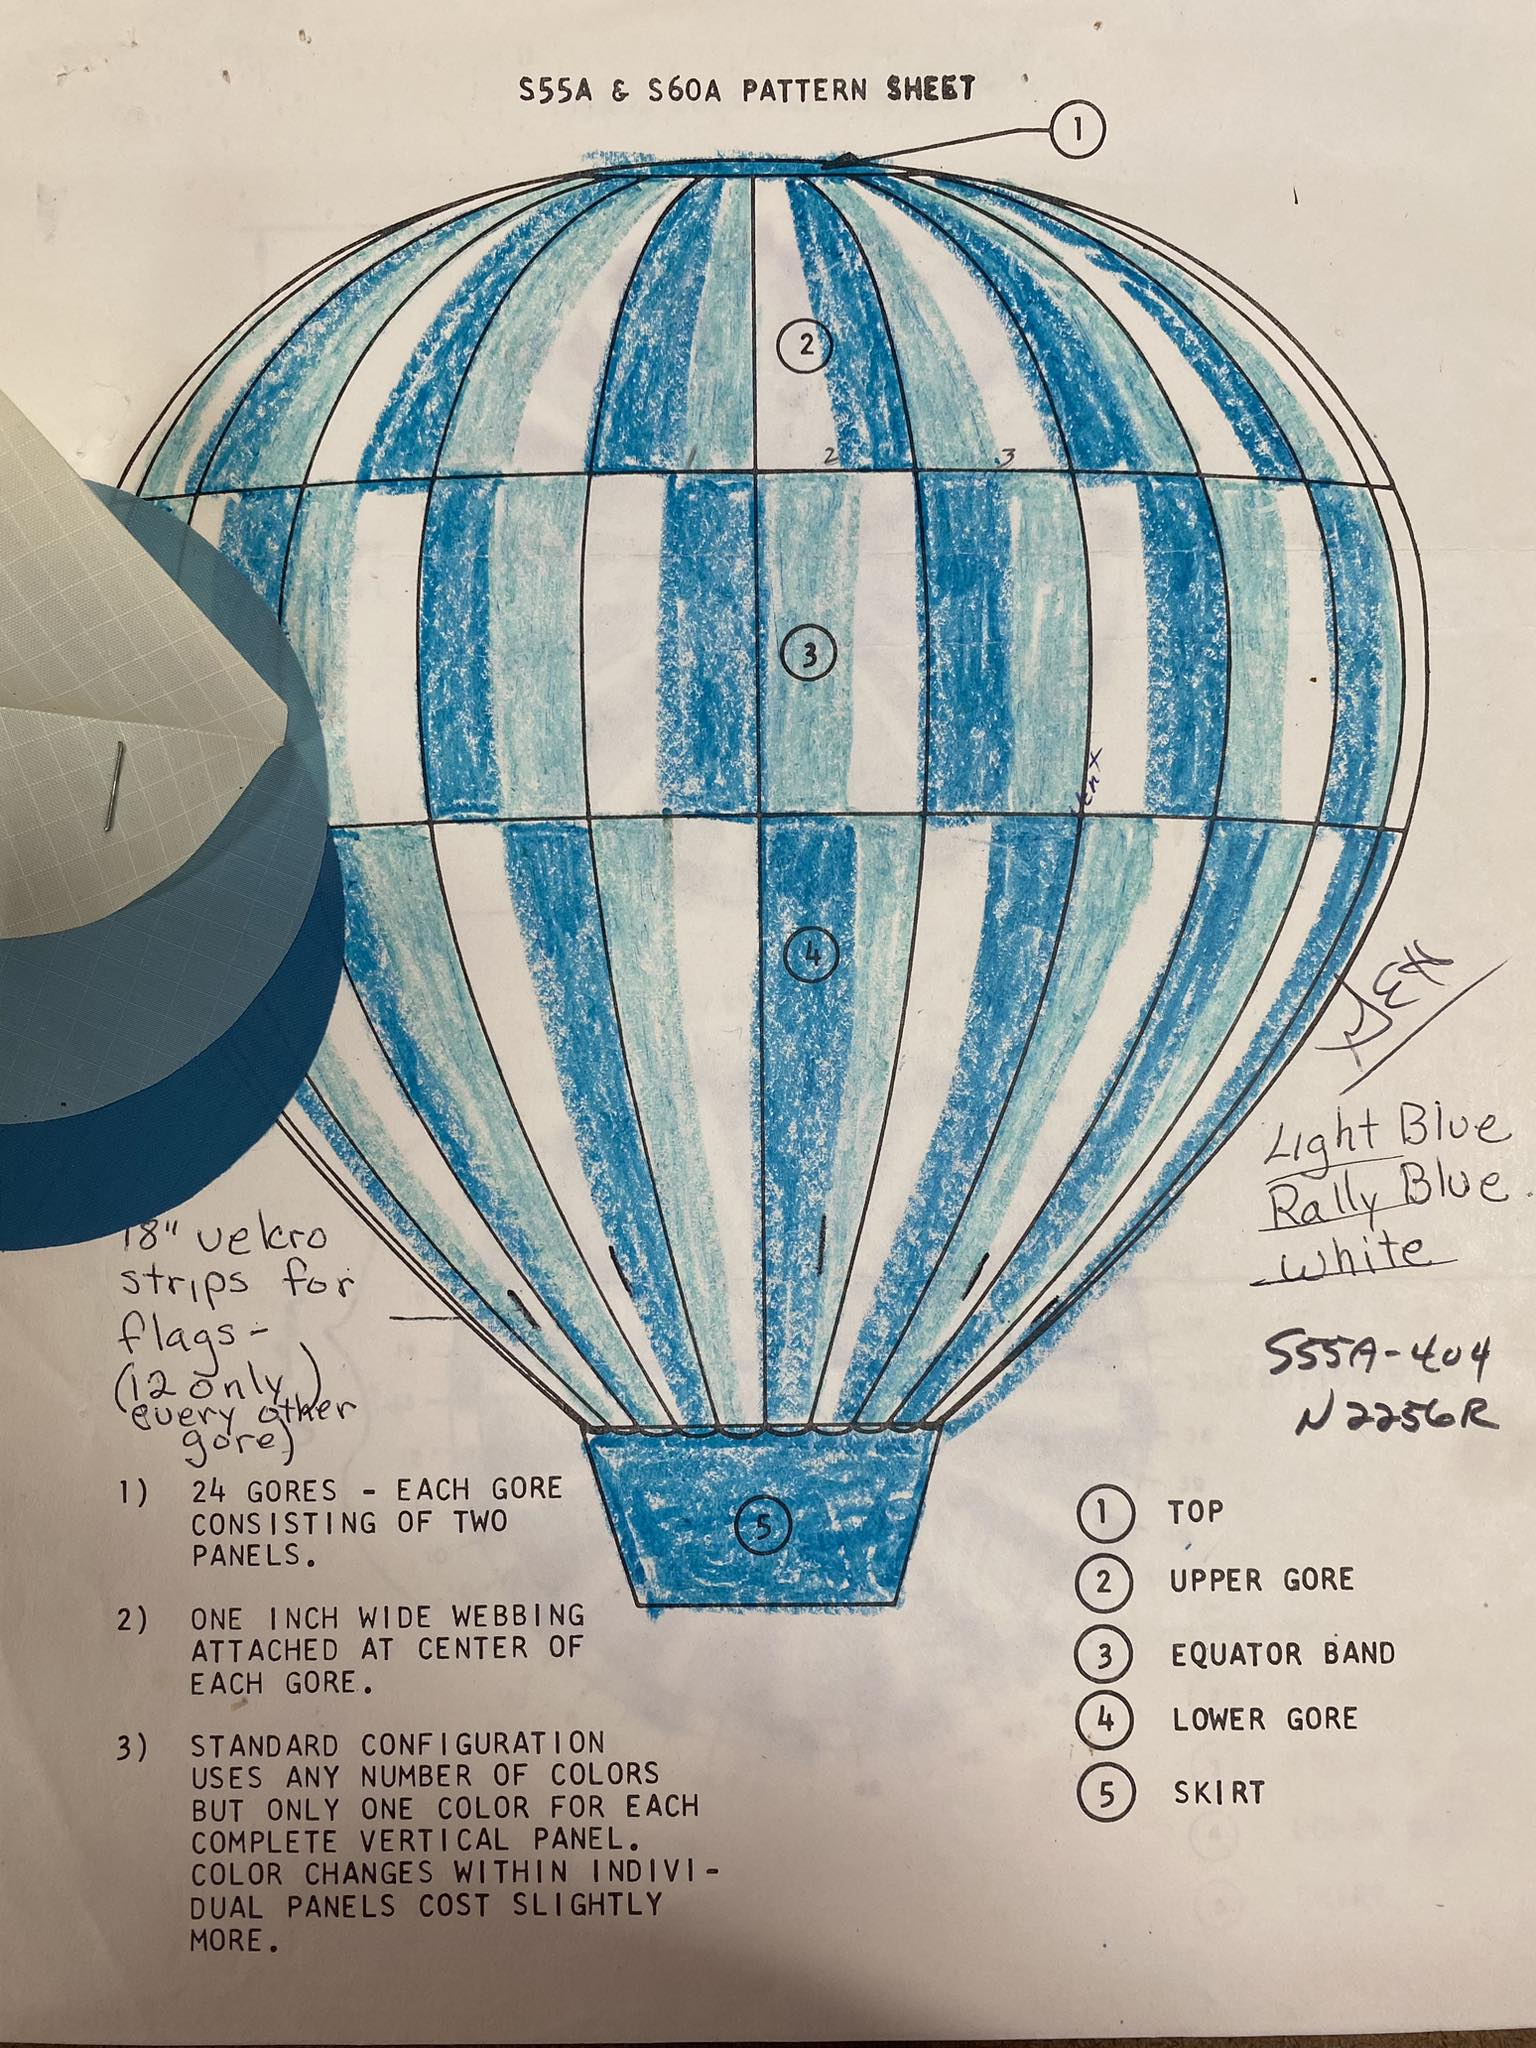 S55A & S60A PATTERN SHEET
1
2
1 2 3
3
Vent
4
Light Blue
Rally Blue
White
18" velcro
strips for
flags -
(12 only)
every other
gore)
S55A-404
N2256R
5
1) 24 GORES - EACH GORE
CONSISTING OF TWO
PANELS.
2) ONE INCH WIDE WEBBING
ATTACHED AT CENTER OF
EACH GORE.
3) STANDARD CONFIGURATION
USES ANY NUMBER OF COLORS
BUT ONLY ONE COLOR FOR EACH
COMPLETE VERTICAL PANEL.
COLOR CHANGES WITHIN INDIVI-
DUAL PANELS COST SLIGHTLY
MORE.
1 TOP
2 UPPER GORE
3 EQUATOR BAND
4 LOWER GORE
5 SKIRT